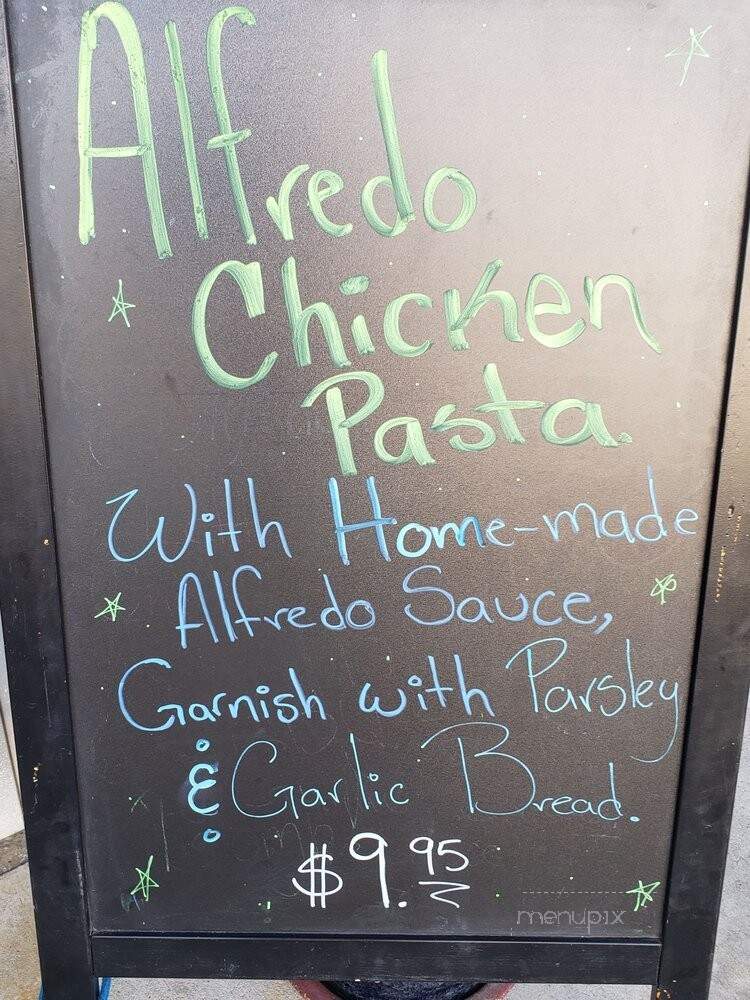 Alfredo
Chicken
Pasta.
With Home-made
Alfredo Sauce,
Garnish with Parsley
& Garlic Bread.
$9.95
menupix